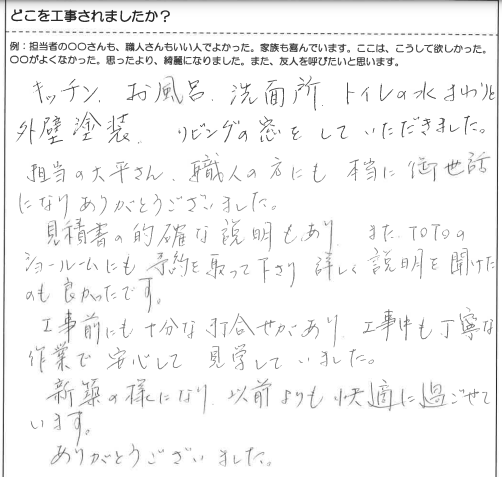 どこを工事されましたか？
例：担当者の〇〇さんも、職人さんもいい人でよかった。家族も喜んでいます。ここは、こうして欲しかった。
〇〇がよくなかった。思ったより、綺麗になりました。また、友人を呼びたいと思います。
キッチン、お風呂、洗面所、トイレの水まわりと
外壁塗装、リビングの窓をしていただきました。
担当の大平さん、職人の方にも本当に御世話
になりありがとうございました。
見積書の的確な説明もあり、また、TOTOの
ショールームにも予約を取って下さり詳しく説明を聞けた
のも良かったです。
工事前にも十分な打合せがあり、工事中も丁寧な
作業で安心して見学していました。
新築の様になり、以前よりも快適に過ごせて
います。
ありがとうございました。